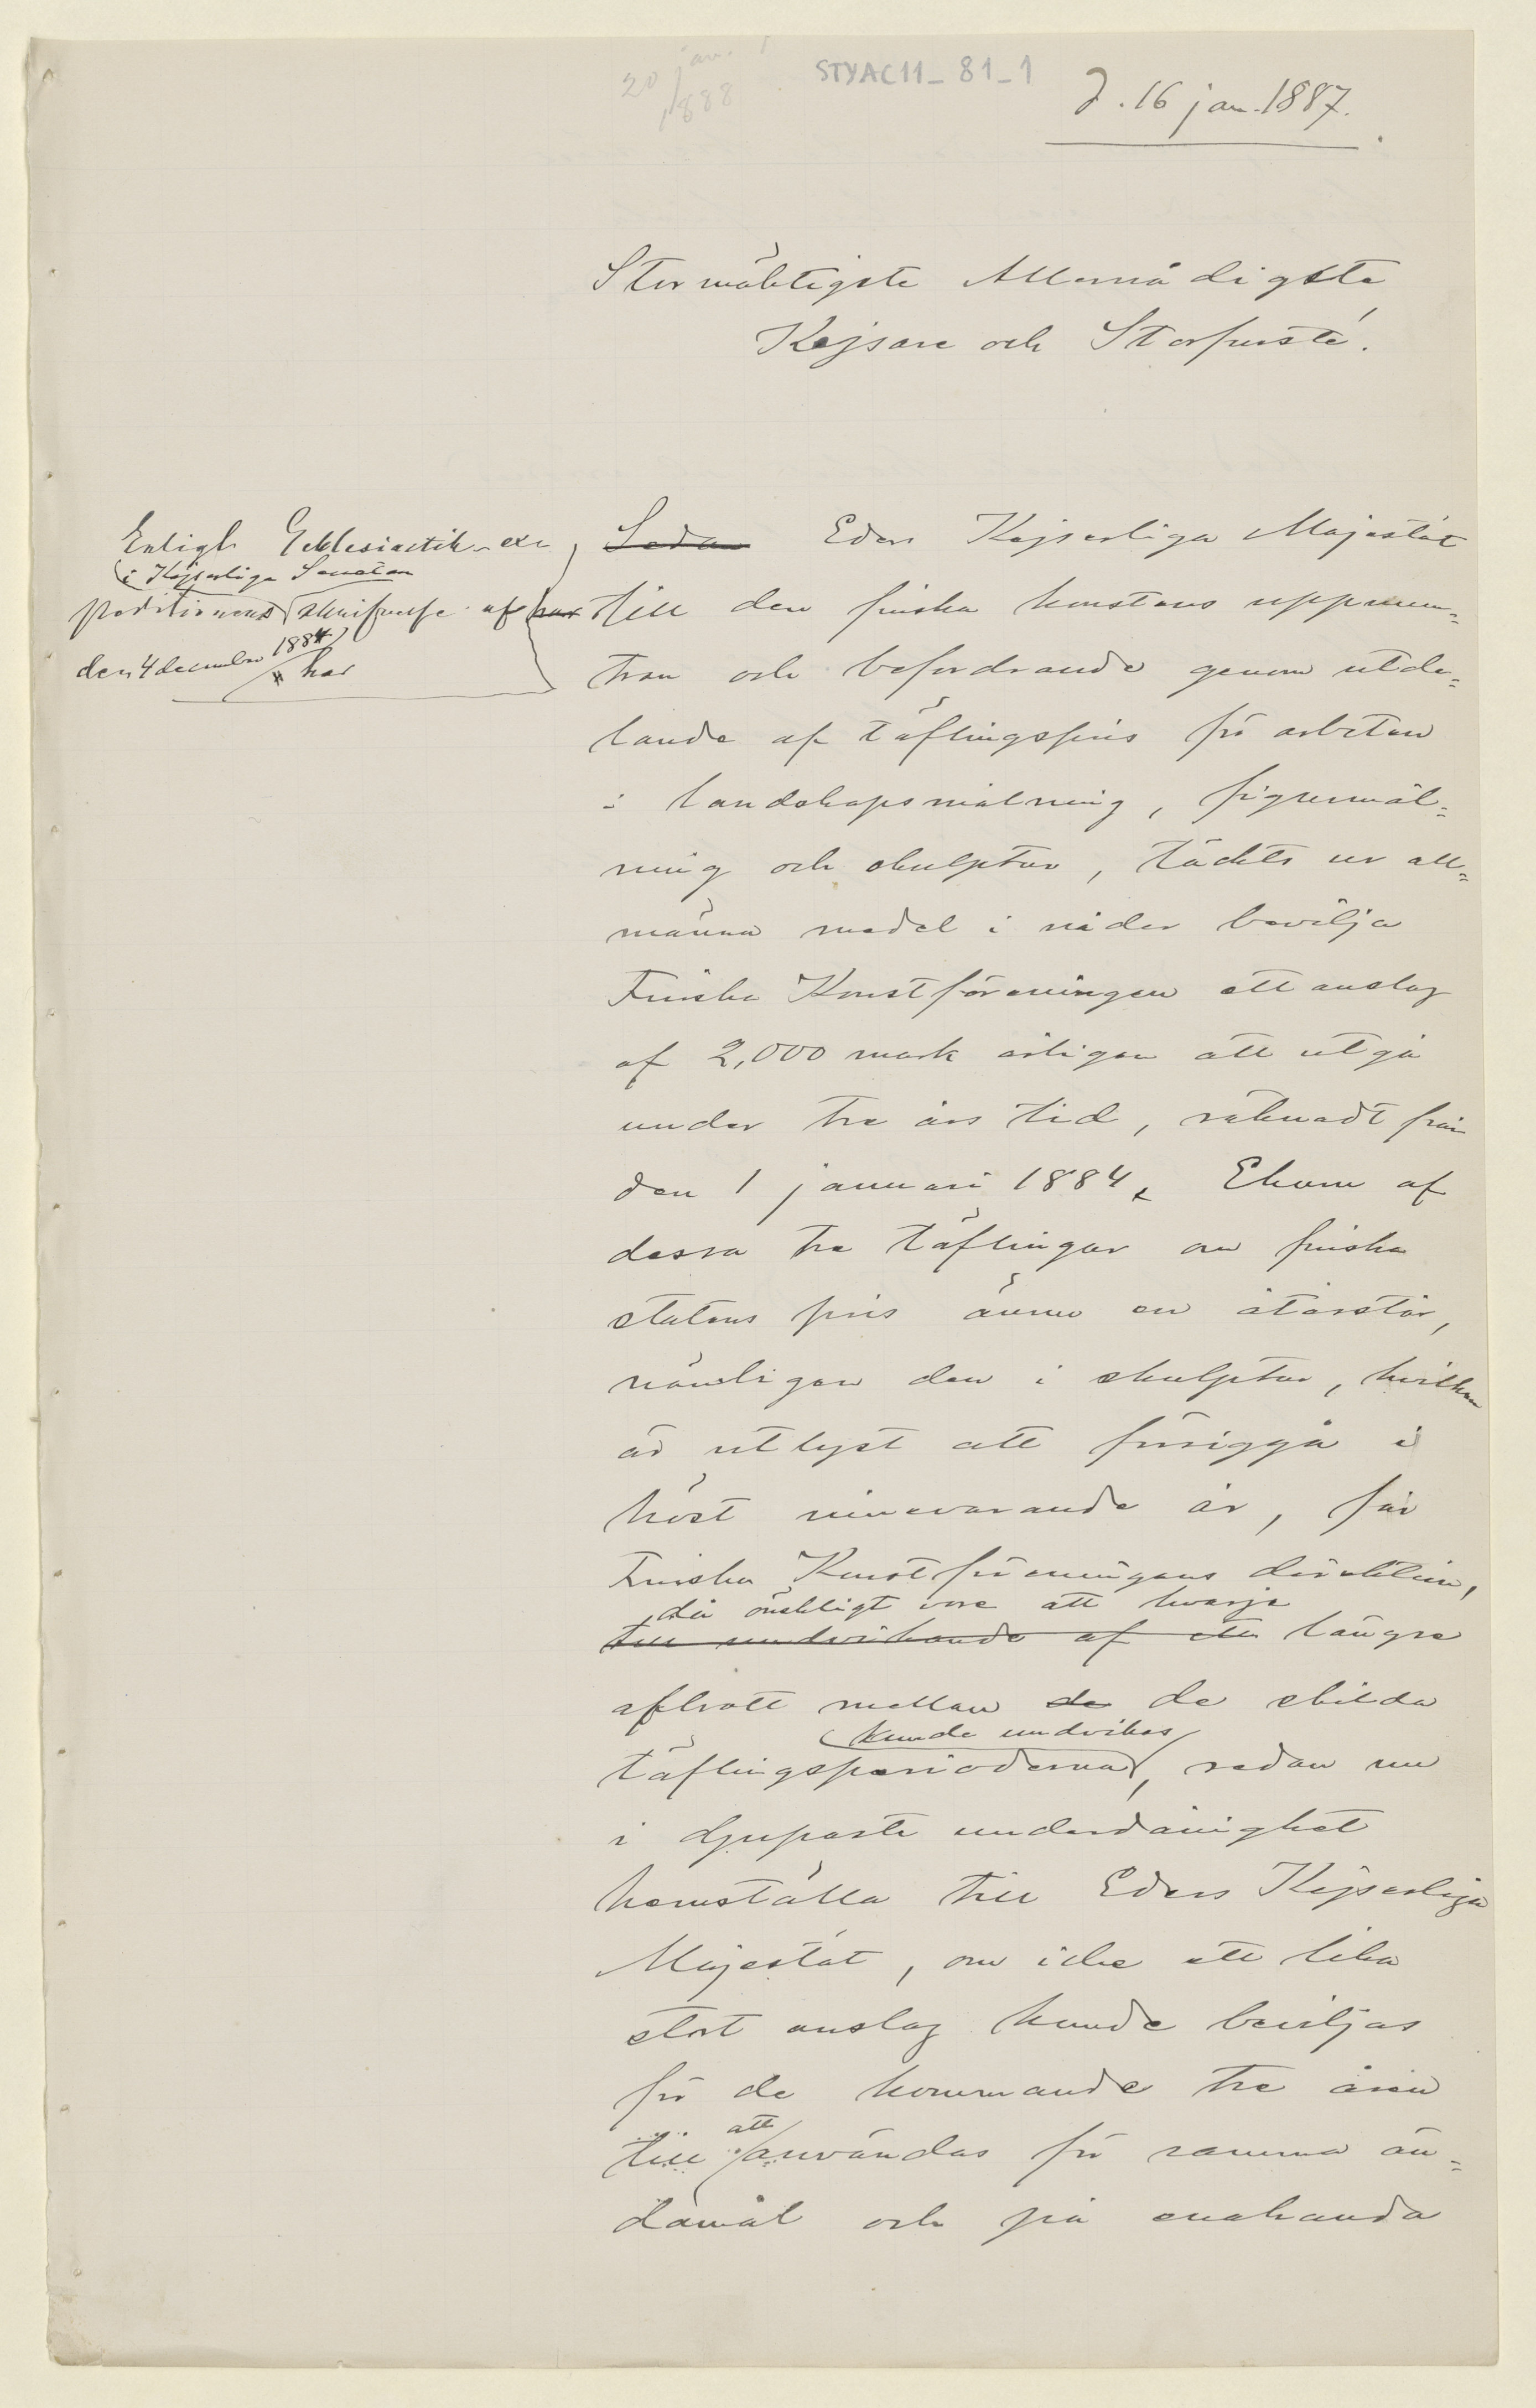 20 jan. 1888
STYAC11_81_1
d. 16 jan. 1887.
Stormäktigste Allernådigste
Kejsare och Storfurste!
Enligt Ecklesiastik-ex-
i Kejserliga Senaten
peditionens skrifvelse af har
den 4 december 1884
har
Sedan Eders Kejserliga Majestät
till den finska konstens uppmun=
tran och befordrande genom utde=
lande af täflingspris för arbeten
i landskapsmålning, figurmål=
ning och skulptur, täckts ur all=
männa medel i nåder bevilja
Finska Konstföreningen ett anslag
af 2,000 mark årligen att utgå
under tre års tid, räknadt från
den 1 januari 1884. Ehuru af
dessa tre täflingar om finska
statens pris ännu en återstår,
nämligen den i skulptur, hvilken
är utlyst att försiggå i
höst innevarande år, får
Finska Konstföreningens direktion,
då önskligt vore att hvarje
till undvikande af ett längre
afbrott mellan de de skilda
kunde undvikas
täflingsperioderna, redan nu
i djupaste underdånighet
hemställa till Eders Kejserliga
Majestät, om icke ett lika
stort anslag kunde beviljas
för de kommande tre åren
att
till användas för samma än=
damål och på enahanda